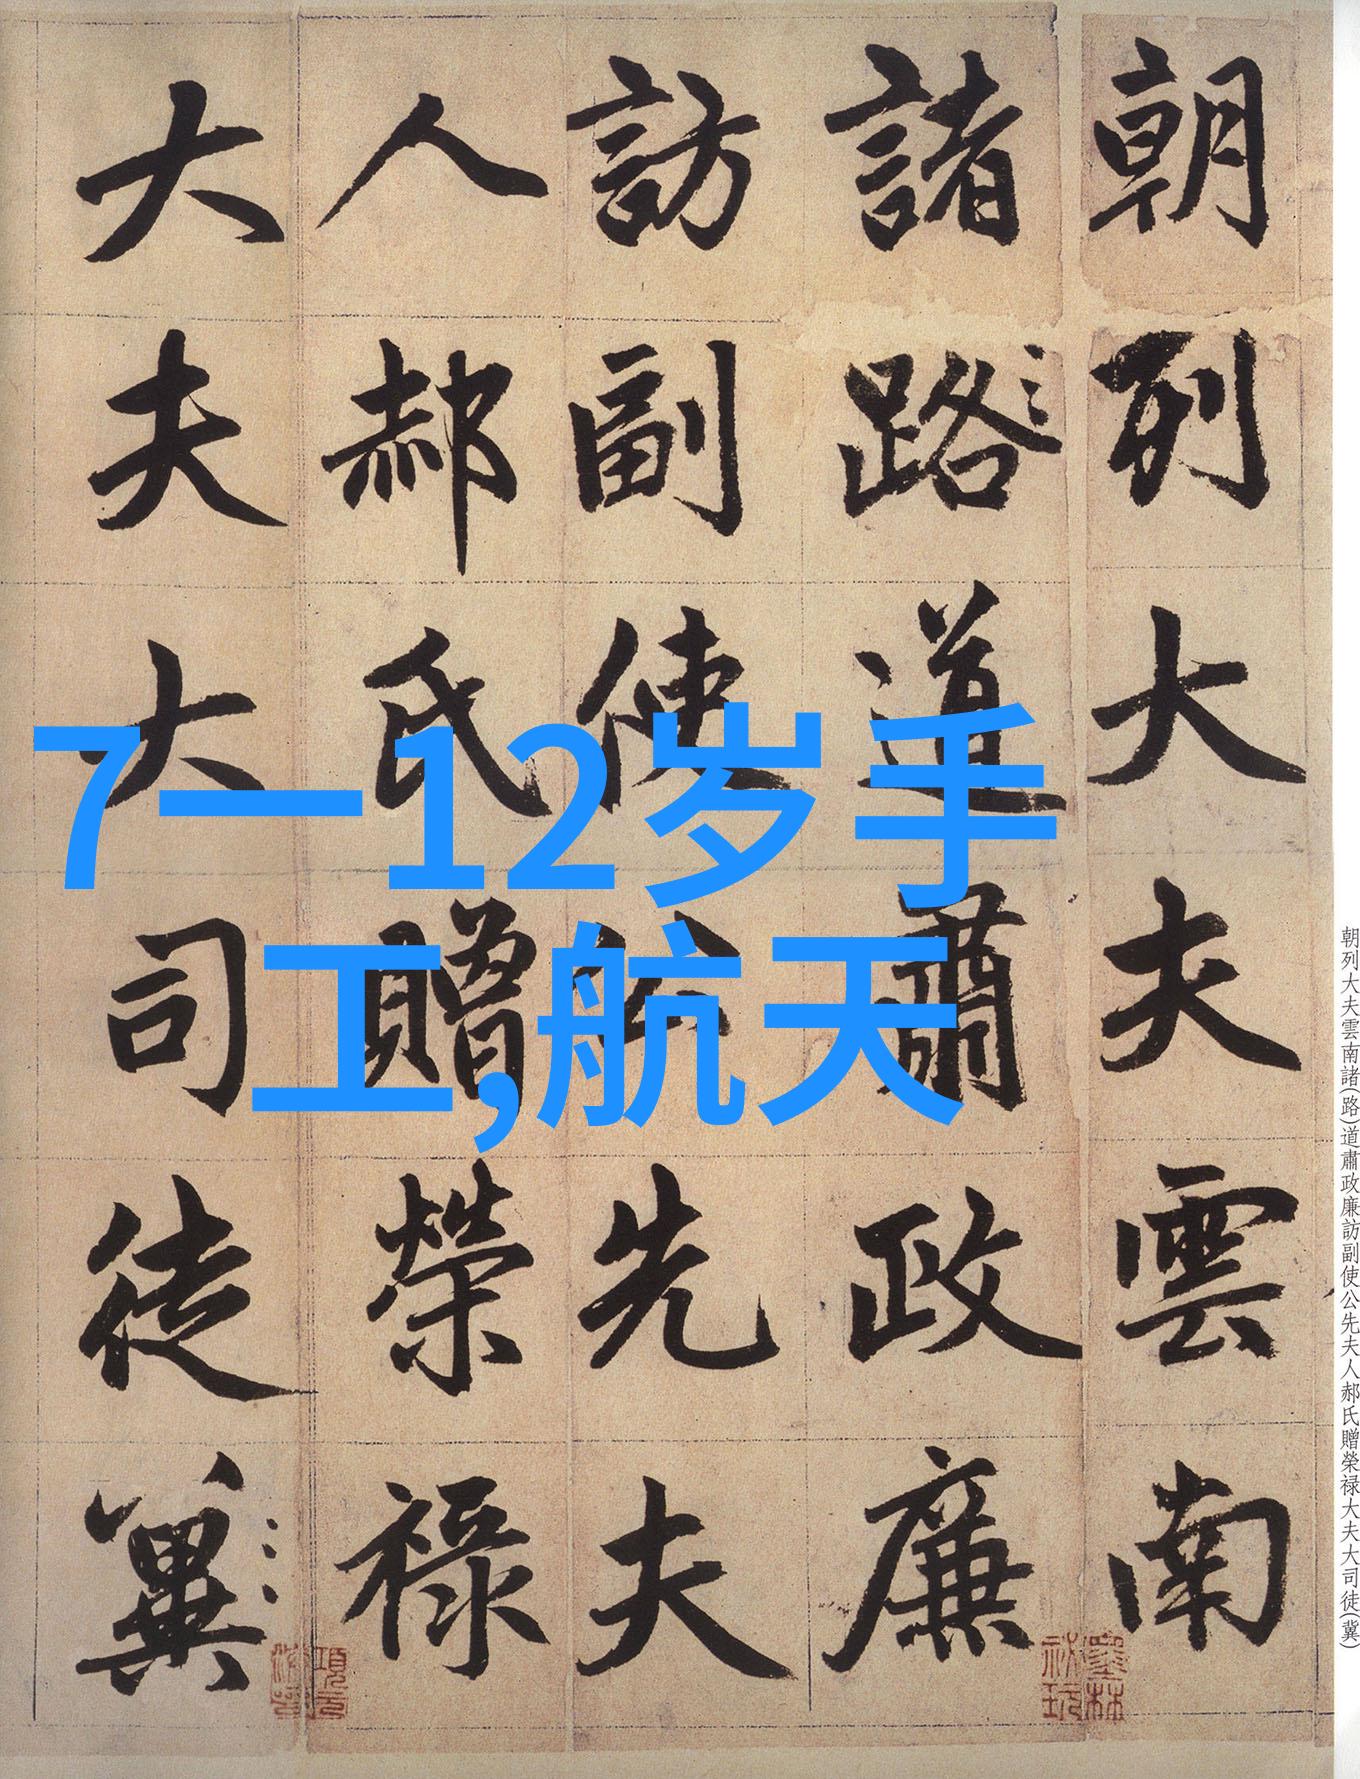 朝列大夫雲南
諸路道肅政廉
訪副使公先夫
人郝氏贈榮禄
大夫大司徒冀
7一12岁手
工,航天
朝列大夫雲南諸(路)道肅政廉訪副使公先夫人郝氏贈榮禄大夫大司徒(冀)